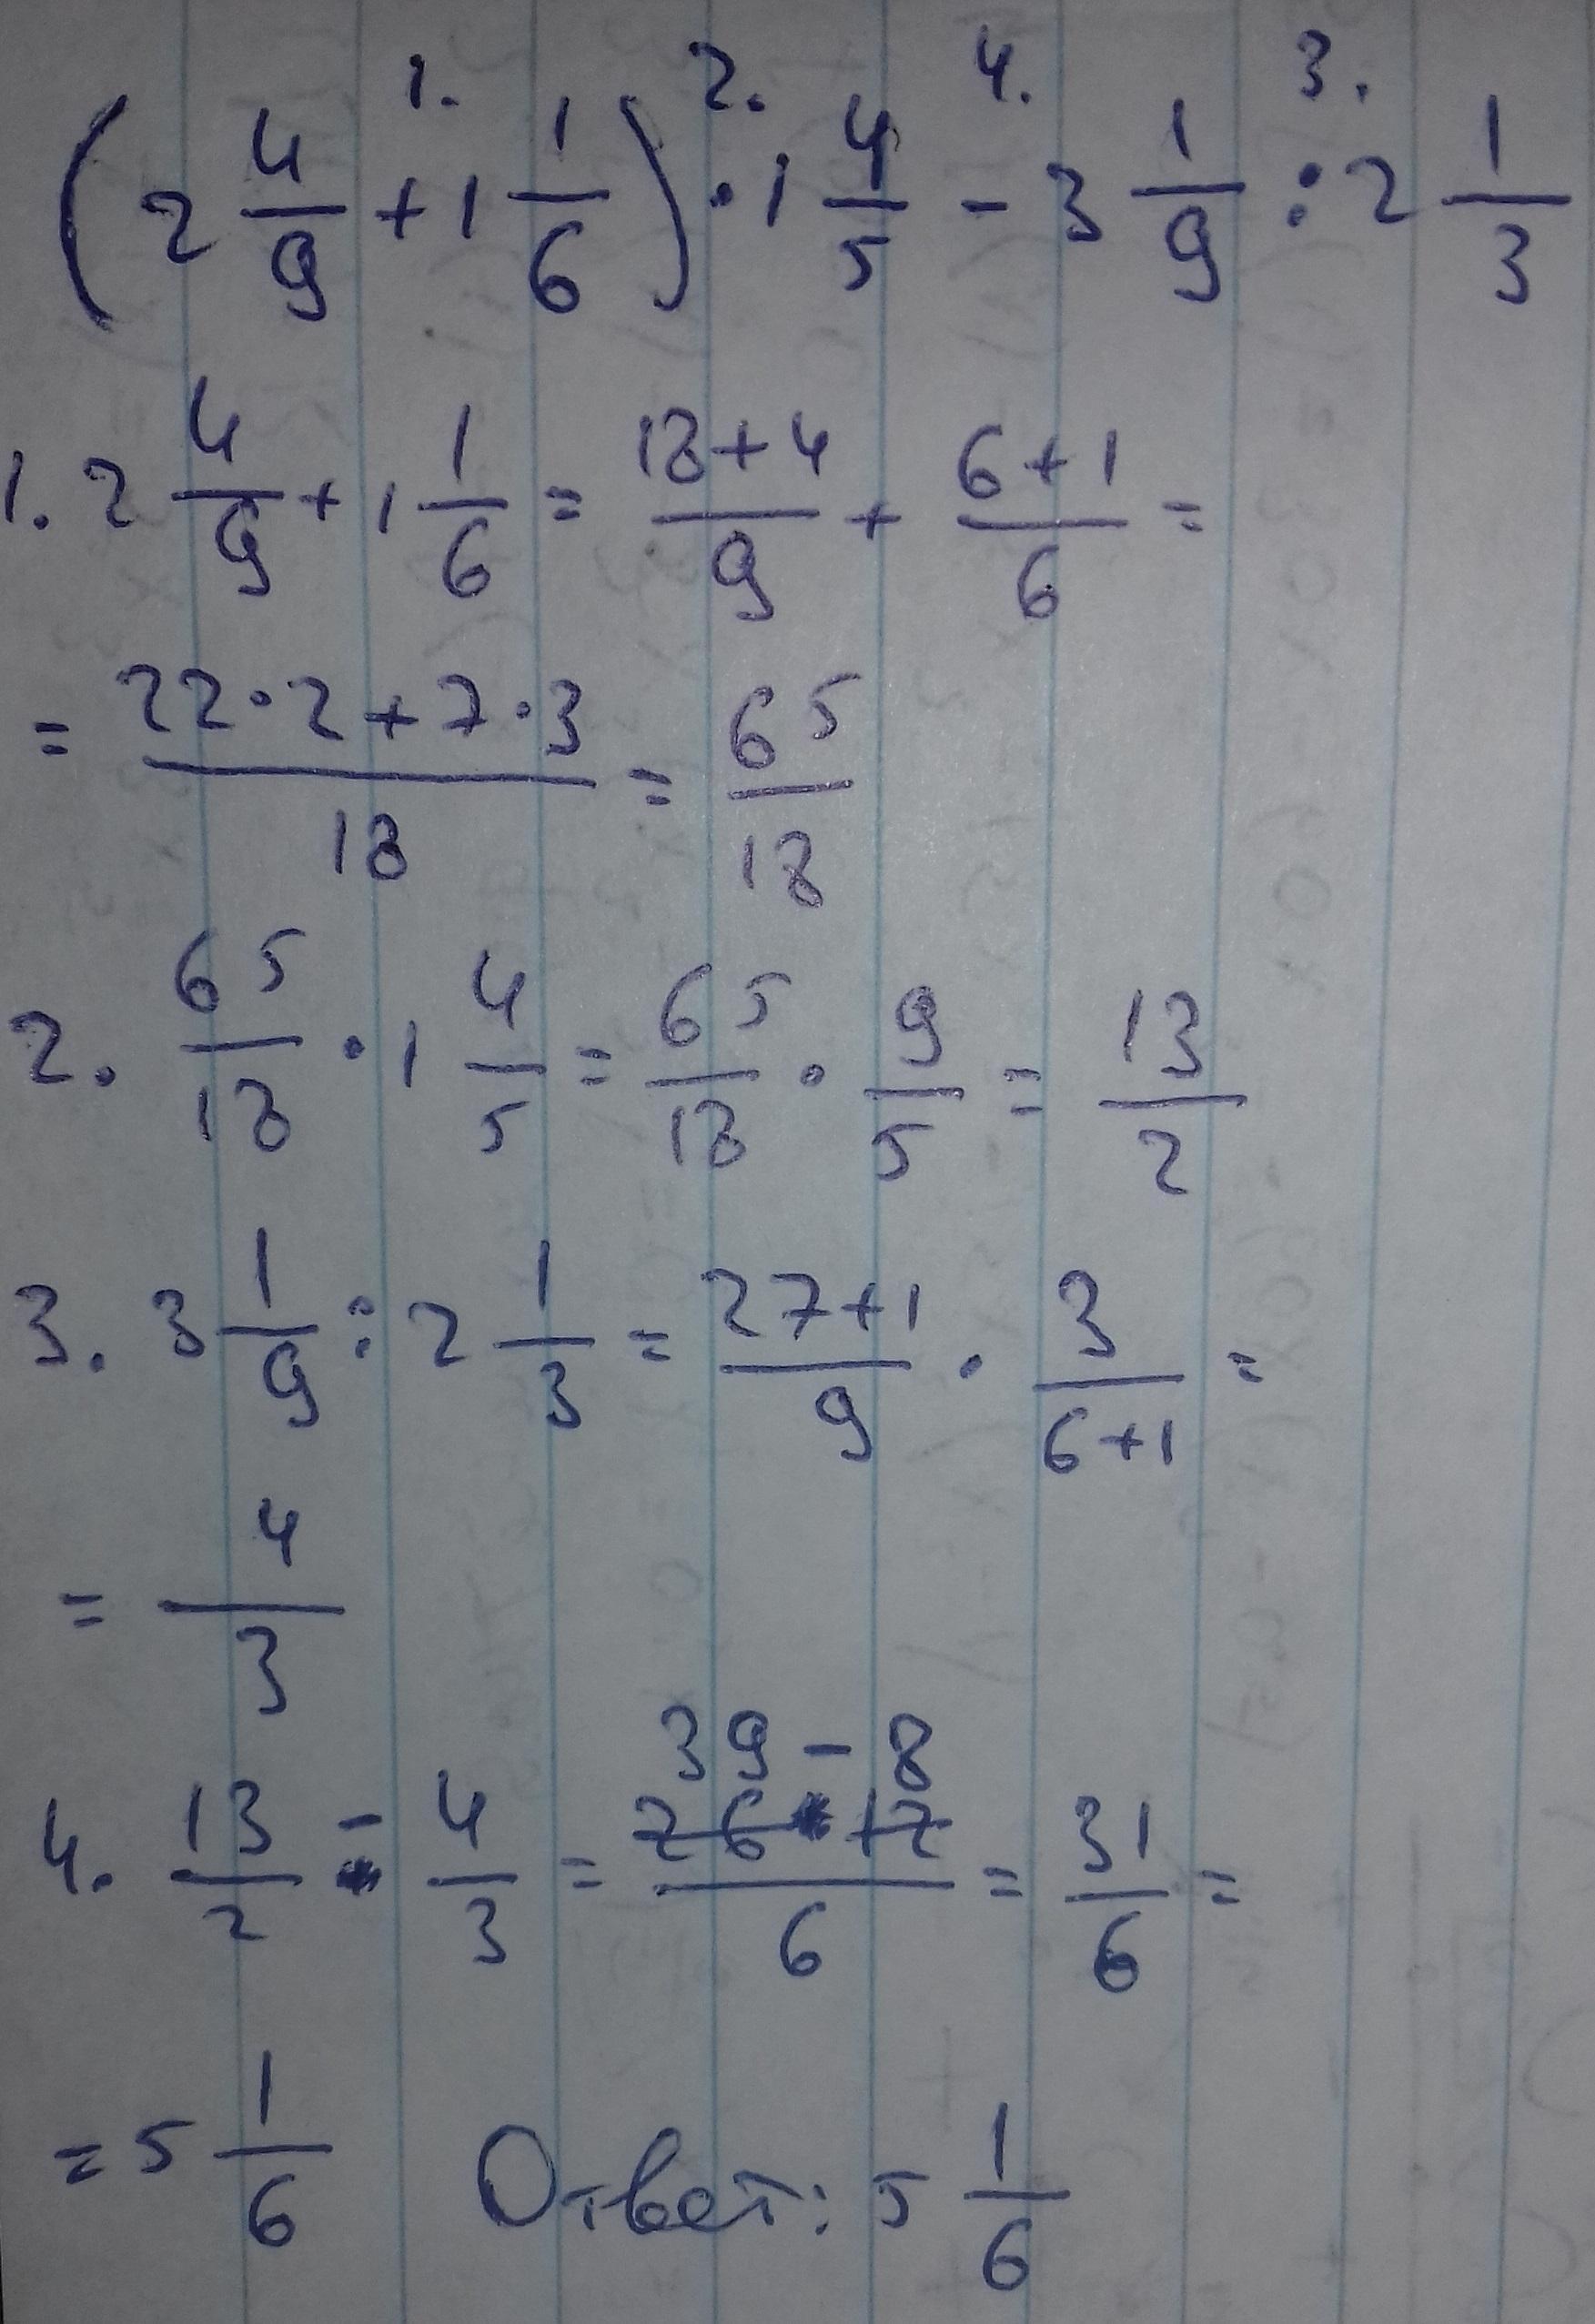 1. 2. 4. 3.
(2 4/9 + 1 1/6) · 1 4/5 - 3 1/9 : 2 1/3
1. 2 4/9 + 1 1/6 = (18+4)/9 + (6+1)/6 =
= (22·2+7·3)/18 = 65/18
2. 65/18 · 1 4/5 = 65/18 · 9/5 = 13/2
3. 3 1/9 : 2 1/3 = (27+1)/9 · 3/(6+1) =
= 4/3
4. 13/2 - 4/3 = (39-8)/6 = 31/6 =
= 5 1/6 Ответ: 5 1/6